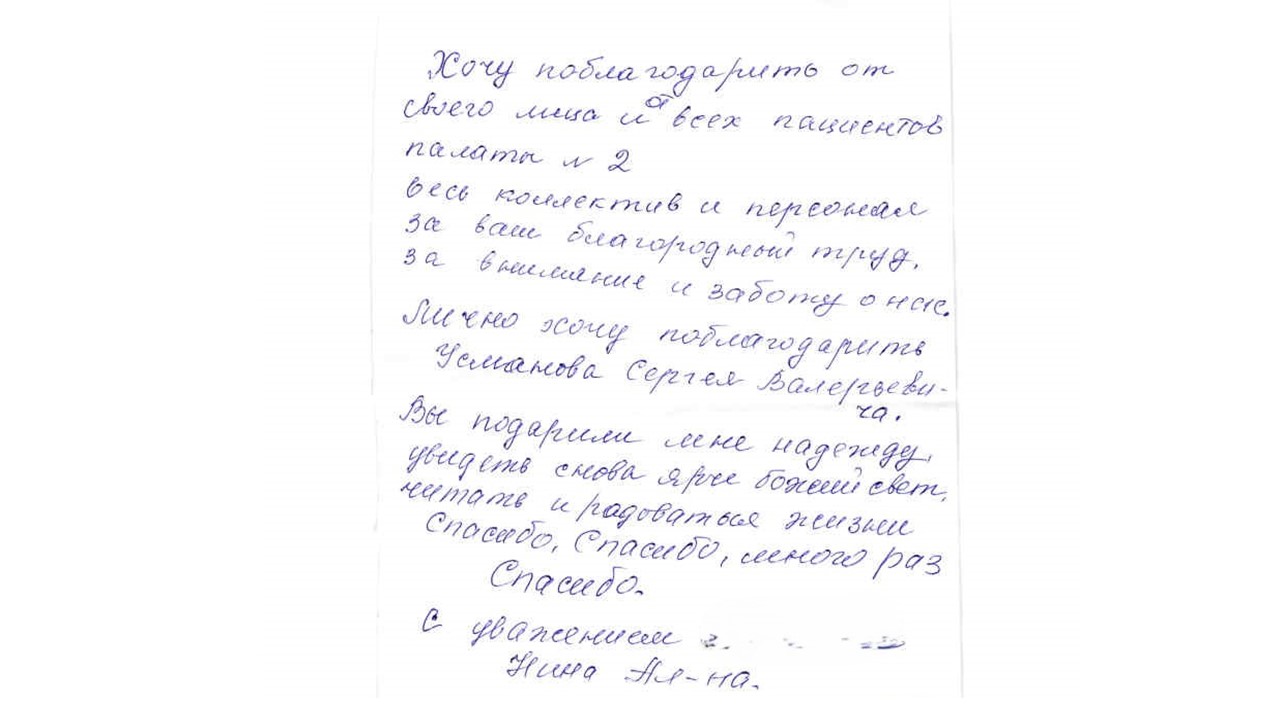 Хочу поблагодарить от
своего лица и от всех пациентов
палаты № 2
весь коллектив и персонал
за ваш благородный труд,
за внимание и заботу о нас.
Лично хочу поблагодарить
Усманова Сергея Валерьеви-
ча.
Вы подарили мне надежду,
увидеть снова ярче божий свет,
читать и радоваться жизни
Спасибо, Спасибо, много раз
Спасибо.
С уважением
Нина Ал-на.